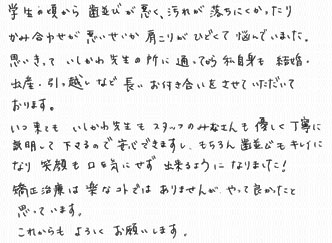 学生の頃から 歯並びが悪く、汚れが 落ちにくかったり
かみ合わせが 悪いせいか 肩こりがひどくて 悩んでいました。
思いきって いしかわ先生の所に 通ってから私自身も 結婚・
出産・引っ越しなど 長い お付き合いを させていただいて
おります。
いつ来ても いしかわ先生も スタッフのみなさんも 優しく丁寧に
説明して 下さるので 安心できますし、もちろん 歯並びも キレイに
なり 笑顔も 口を気にせず 出来るように なりました!
矯正治療は 楽なコトでは ありませんが、やって良かったと
思っています。
これからも よろしく お願いします。